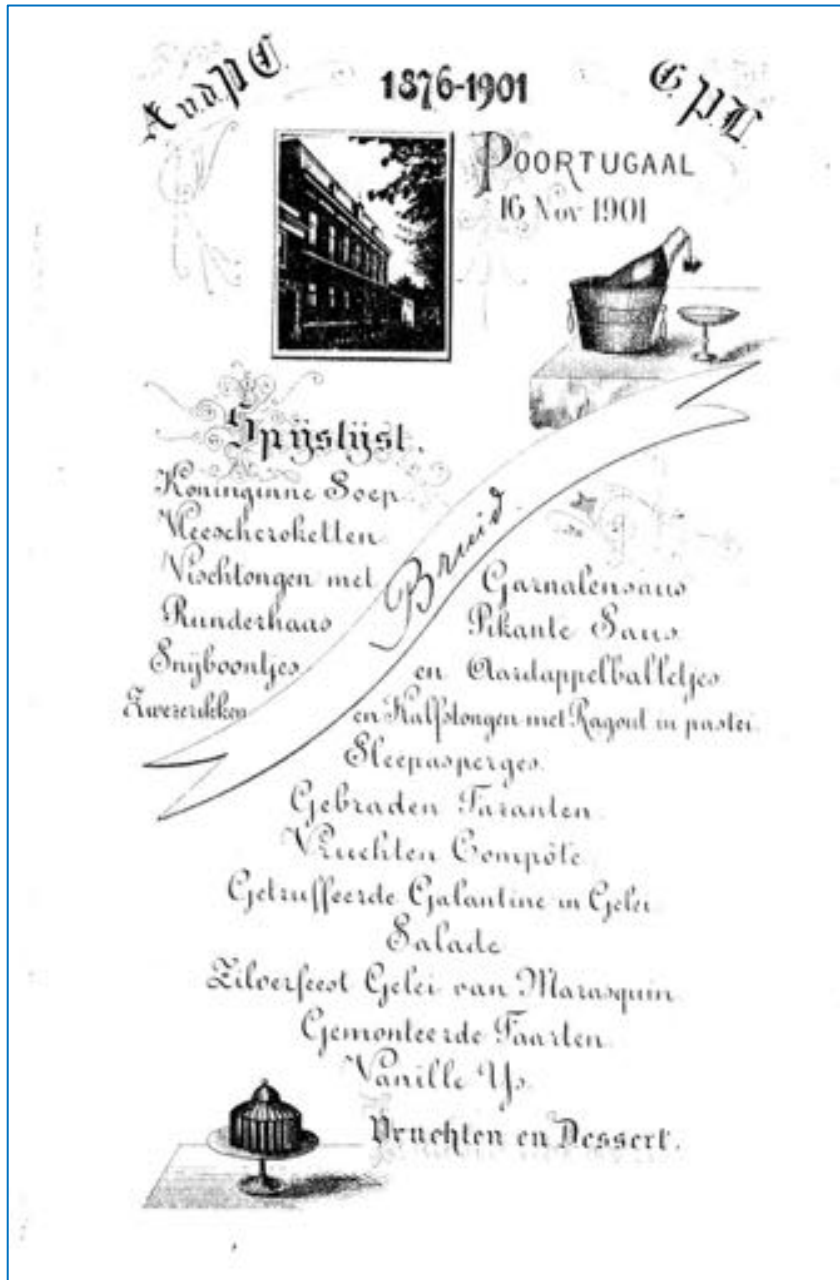 A.v.d.P.C.
1876-1901
G.P.L.
POORTUGAAL
16 Nov 1901
Spijslijst.
Koninginne Soep
Vleeschcroketten
Vischtongen met Garnalensaus
Bruid.
Runderhaas Pikante Saus
Snijboontjes en Aardappelballetjes
Zwezerikken en Kalfstongen met Ragout in pastei.
Sleepasperges.
Gebraden Faranten
Vruchten Compôte
Getruffeerde Galantine in Gelei
Salade
Zilverfeest Gelei van Marasquin
Gemonteerde Taarten
Vanille Ys.
Vruchten en Dessert.